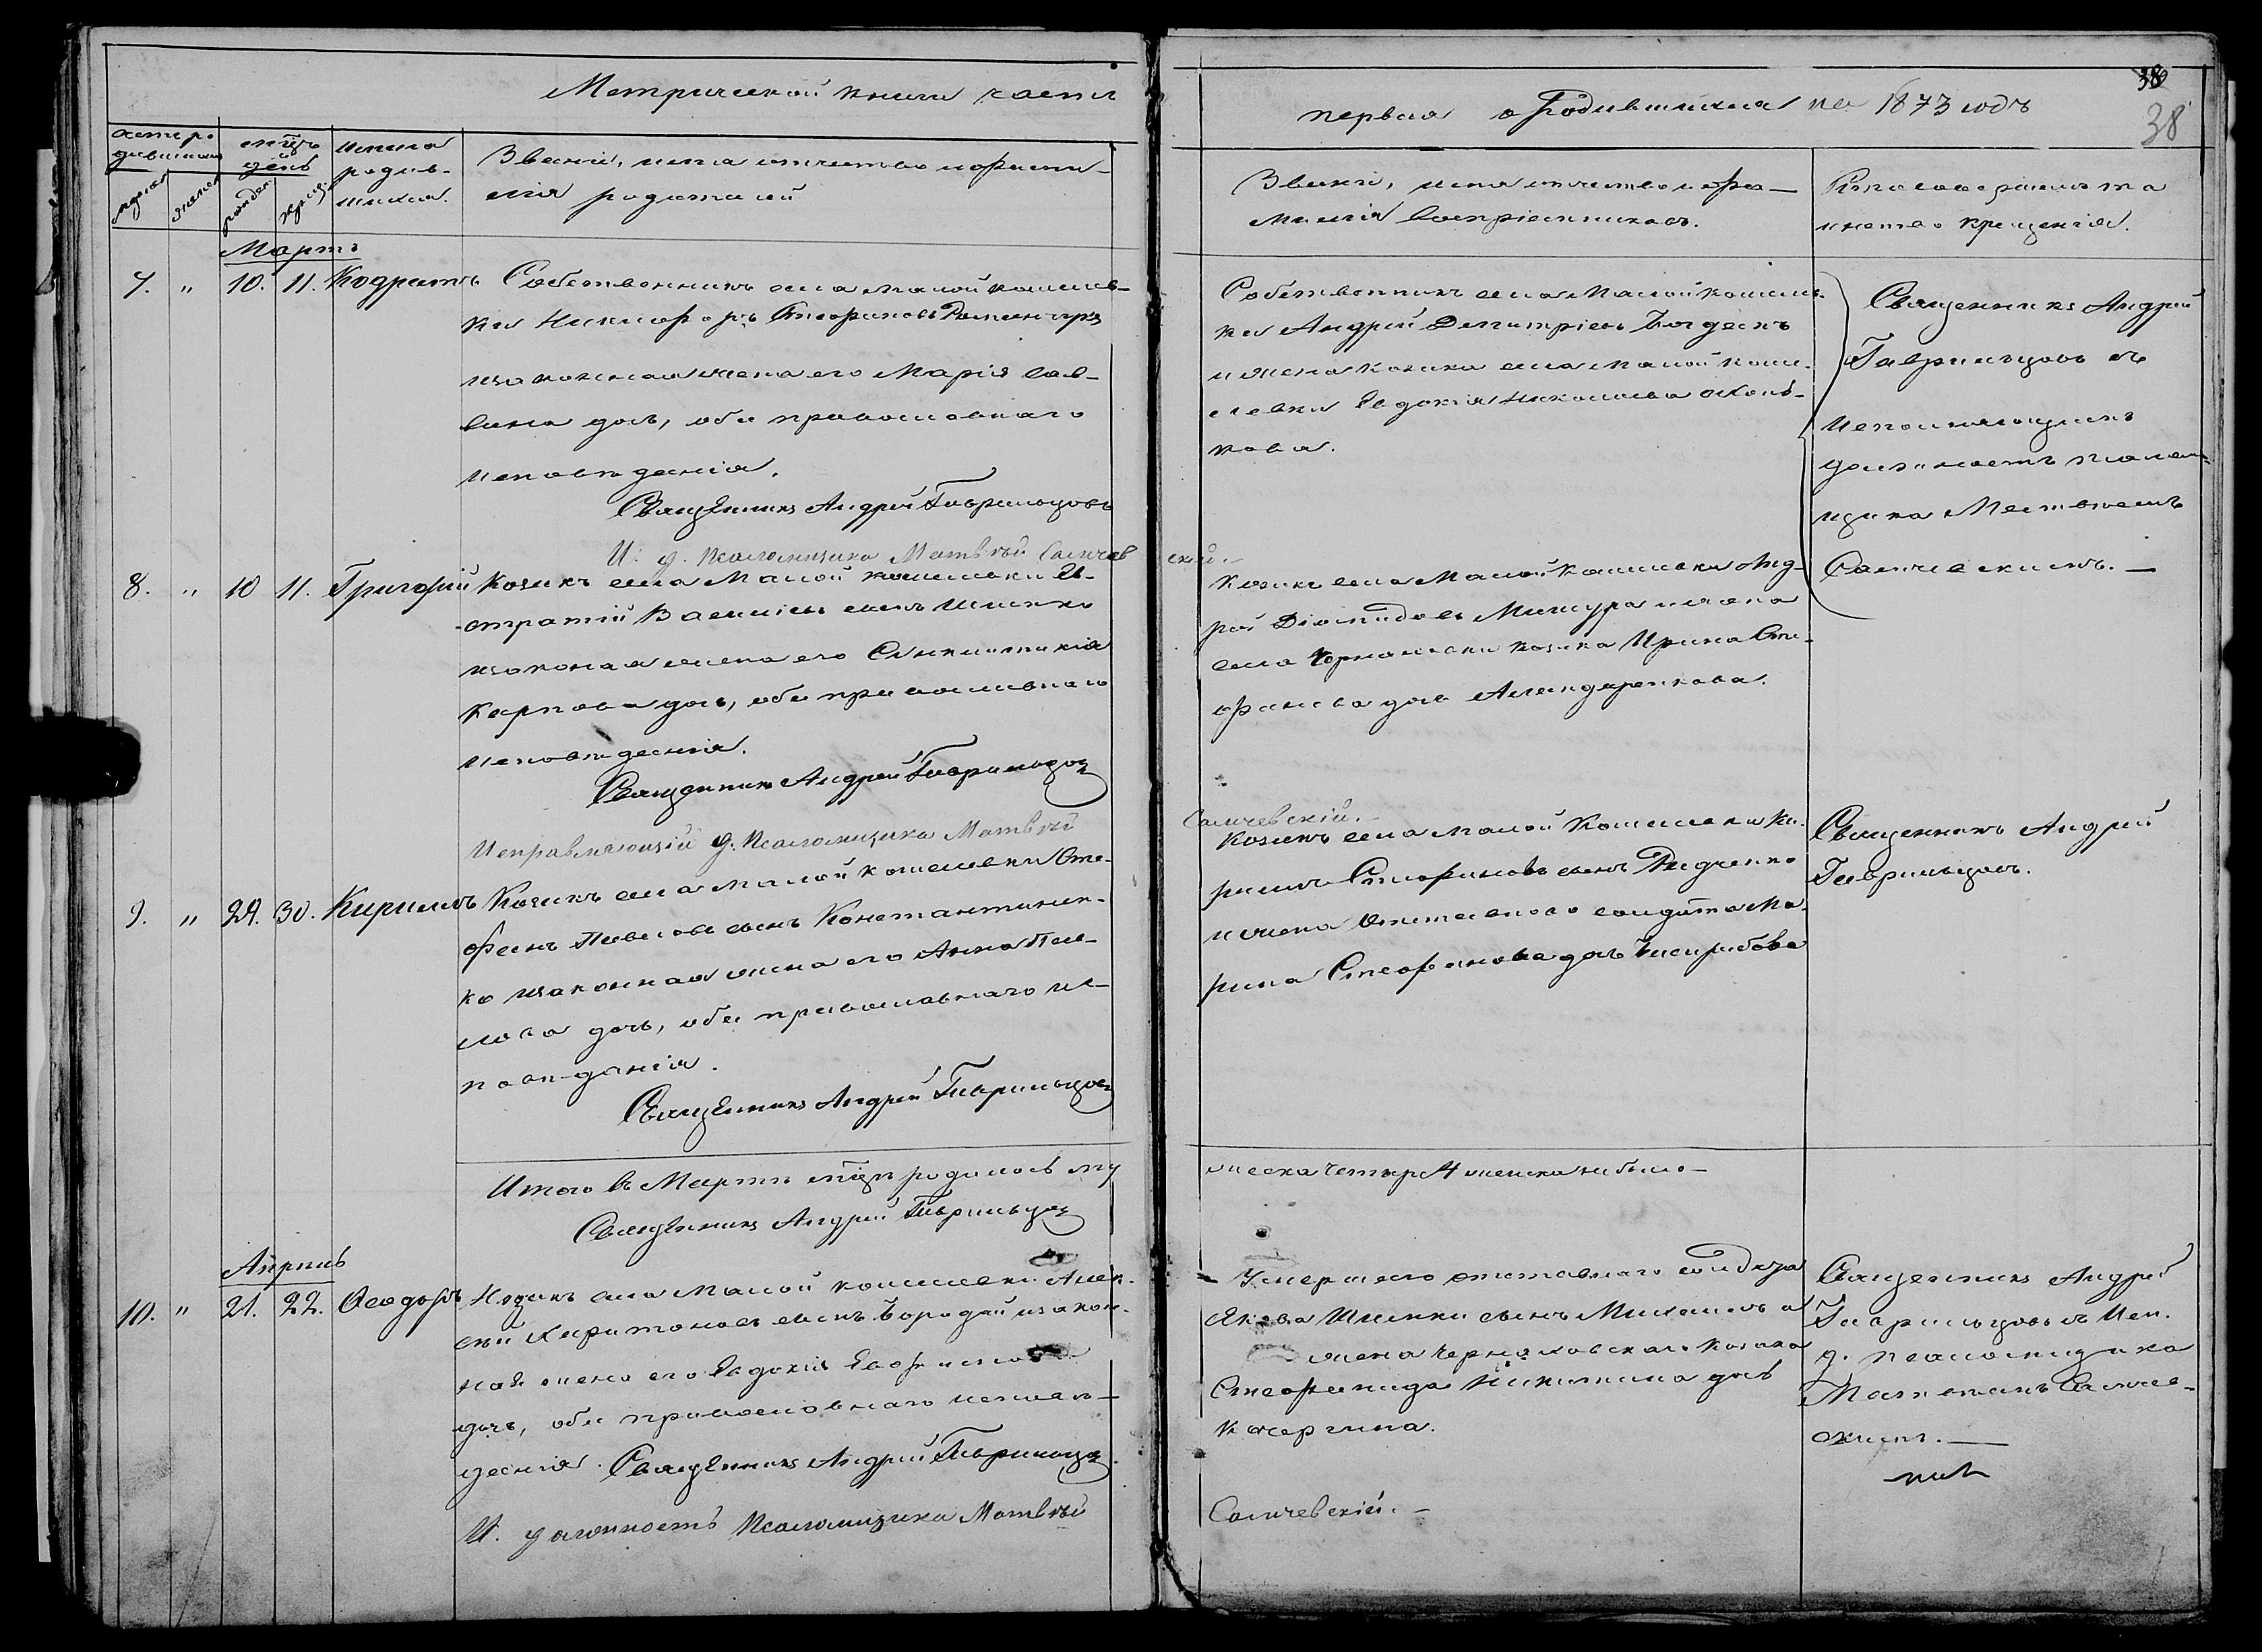 Метрической книги части
первая о Родившихся на 1873 годъ
38
счетъ ро-
дившихся
мужск
женск
мцъ
и
день
рожден.
крещ.
имена
родив-
шихся.
Званіе, имя отчество и фами-
лія родителей
Званіе, имя отчество и фа-
милія воспріемниковъ.
Кто совершалъ та
инство крещенія.
Мартъ
7. " 10. 11. Кодратъ
Собственникъ села Малой Кошелев-
ки Никифоръ Стефановъ
и законная жена его Марія Сав-
вина дочь, оба православнаго
исповѣданія.
Священникъ Андрей Гаврильцовъ
И. д. Псаломщика Матвѣй Саличевскій.-
Собственникъ села Малой Кошелев-
ки Андрей Димитріевъ
и жена козака села Малой Коше-
левки Евдокія Николаева
кова.
Священникъ Андрей
Гаврильцовъ съ
исполняющимъ
должность псалом-
щика Матвѣемъ
Саличевскимъ. —
8. " 10 11. Григорій
Козакъ села Малой Кошелевки Ев-
стратій Василіевъ сынъ Шленко
и законная жена его Синклитикія
Карпова дочь, оба православнаго
исповѣданія.
Священникъ Андрей Гаврильцовъ
Исправляющій д. Псаломщика Матвѣй
Саличевскій.-
Козакъ села Малой Кошелевки Анд-
рей Діомидовъ Мишура и жена
села козака Ирина Сте-
фанова дочь
9. " 29. 30. Кириллъ
Козакъ села Малой Кошелевки Сте-
фанъ Павловъ сынъ Константинен-
ко и законная жена его Анна Пав-
лова дочь, оба православнаго ис-
повѣданія.
Священникъ Андрей Гаврильцовъ
Козакъ села Малой Кошелевки Ки-
риллъ Стефановъ сынъ Дидченко
и жена отставнаго солдата Ма-
рина Стефанова дочь
Священникъ Андрей
Гаврильцовъ.
Итого въ Мартѣ мцѣ родилось му
жеска четыре 4 женска не было —
Священникъ Андрей Гаврильцовъ
Апрѣль
10. " 21. 22. Ѳеодоръ
Козакъ села Малой Кошелевки Алек-
сѣй Харитоновъ сынъ Бородай и закон-
ная жена его Евдокія
дочь, оба православнаго исповѣ-
данія. Священникъ Андрей Гаврильцовъ
И. должность Псаломщика Матвѣй
Саличевскій. -
Умершаго отставнаго солдата
Якова Шленки сынъ Михаилъ и
жена козака
Стефанида Никитина дочь
Кочергина.
Священникъ Андрей
Гаврильцовъ съ Исп.
д. псаломщика
Матвѣемъ Саличев-
скимъ. —